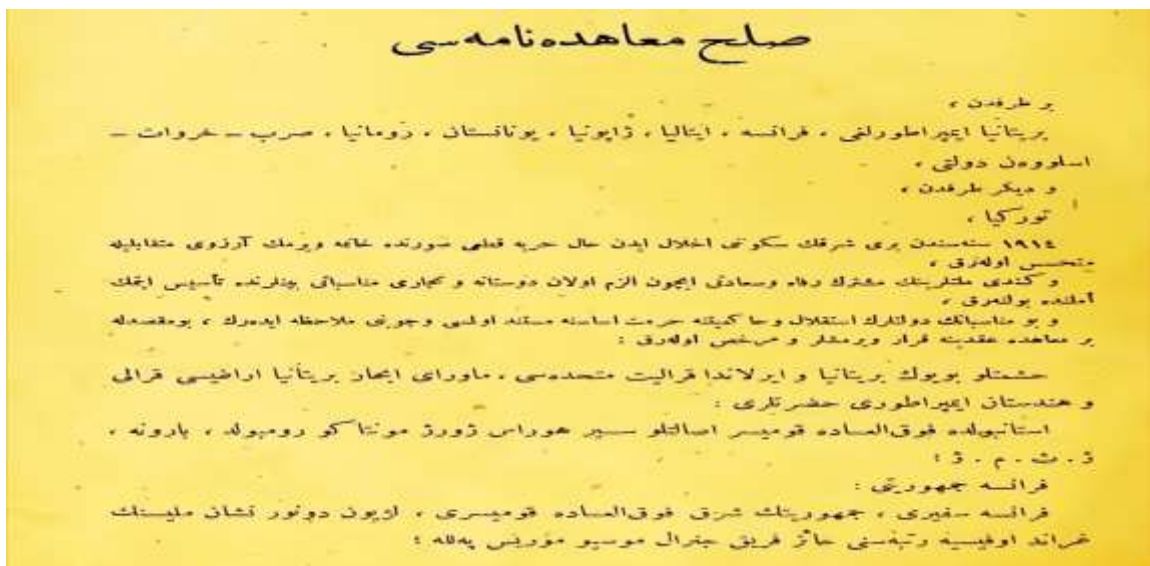 صلح معاهده‌نامه‌سی
بر طرفدن ،
بریتانیا ایمپراطورلغی ، فرانسه ، ایتالیا ، ژاپونیا ، یونانستان ، رومانیا ، صرب – خروات –
اسلوون دولتی ،
و دیگر طرفدن ،
تورکیا ،
١٩١٤ سنه‌سندن بری شرقك سكوننی اخلال ایدن حال حربه قطعی صورتده خاتمه ویرمك آرزوی متقابلیله
متحسس اوله‌رق ،
و كندی ملتلرینك مشترك رفاه وسعادتی ایچون الزم اولان دوستانه و تجاری مناسباتی بینلرنده تأسیس ایتمك
آملنده بولنه‌رق ،
و بو مناسباتك دولتلرك استقلال وحاكمیتنه حرمت اساسنه مستند اولمسی وجوبنی ملاحظه ایده‌رك ، بومقصدله
بر معاهده عقدینه قرار ویرمشلر و مرخص اوله‌رق :
حشمتلو بویوك بریتانیا و ایرلاندا قرالیت متحده‌سی ، ماورای ابحار بریتانیا اراضیسی قرالی
و هندستان ایمپراطوری حضرتلری :
استانبولده فوق‌العاده قومیسر اصالتلو سیر هوراس ژورژ مونتاكو رومبولد ، بارونه ،
ژ . ث . م . ژ ؛
فرانسه جمهوریتی :
فرانسه سفیری ، جمهوریتك شرق فوق‌العاده قومیسری ، لژیون دونور نشان ملیسنك
غراند اوفیسیه رتبه‌سنی حائز فریق جنرال موسیو موریس په‌لله ؛